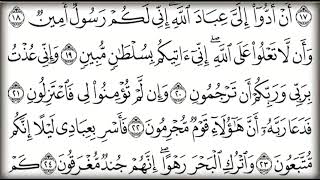 ۝١٧ أَنْ أَدُّوٓا۟ إِلَىَّ عِبَادَ ٱللَّهِ ۖ إِنِّى لَكُمْ رَسُولٌ أَمِينٌ ۝١٨
وَأَن لَّا تَعْلُوا۟ عَلَى ٱللَّهِ ۖ إِنِّىٓ ءَاتِيكُم بِسُلْطَـٰنٍ مُّبِينٍ ۝١٩ وَإِنِّى عُذْتُ
بِرَبِّى وَرَبِّكُمْ أَن تَرْجُمُونِ ۝٢٠ وَإِن لَّمْ تُؤْمِنُوا۟ لِى فَٱعْتَزِلُونِ ۝٢١
فَدَعَا رَبَّهُۥٓ أَنَّ هَـٰٓؤُلَآءِ قَوْمٌ مُّجْرِمُونَ ۝٢٢ فَأَسْرِ بِعِبَادِى لَيْلًا إِنَّكُم
مُّتَّبَعُونَ ۝٢٣ وَٱتْرُكِ ٱلْبَحْرَ رَهْوًا ۖ إِنَّهُمْ جُندٌ مُّغْرَقُونَ ۝٢٤ كَمْ